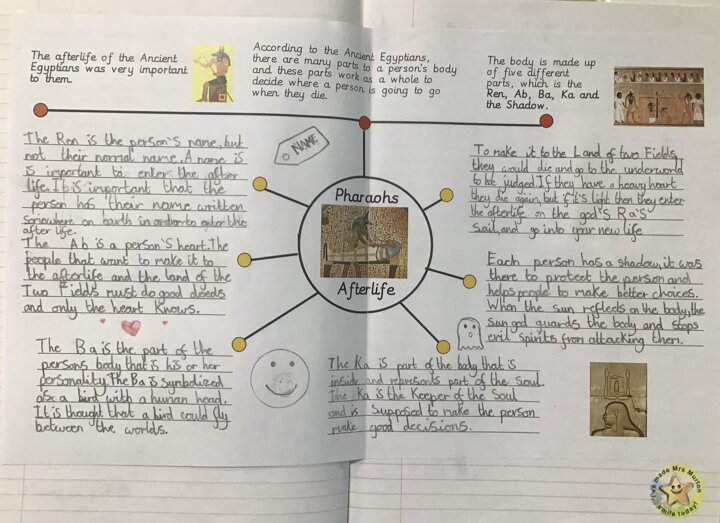 The afterlife of the Ancient
Egyptians was very important
to them.
According to the Ancient Egyptians,
there are many parts to a person's body
and these parts work as a whole to
decide where a person is going to go
when they die.
The body is made up
of five different
parts, which is the
Ren, Ab, Ba, Ka and
the Shadow.
The Ren is the person's name, but
not their normal name. A name is
is important to enter the after
life. It is important that the
person has their name written
somewhere on earth in order to enter the
after life.
The Ab is a person's heart. The
people that want to make it to
the afterlife and the land of the
Two Fields must do good deeds
and only the heart knows.
The Ba is the part of the
persons body that is his or her
personality. The Ba is symbolized
as a bird with a human head.
It is thought that a bird could fly
between the worlds.
NAME
Pharaohs
Afterlife
The Ka is part of the body that is
inside and represents part of the Soul.
The Ka is the Keeper of the Soul
and is supposed to make the person
make good decisions.
To make it to the Land of two Fields,
they would die and go to the underworld
to be judged. If they have a heavy heart
they die again, but if it's light then they enter
the afterlife on the god's Ra's
sail, and go into your new life
Each person has a shadow, it was
there to protect the person and
helps people to make better choices.
When the sun reflects on the body, the
sun god guards the body and stops
evil spirits from attacking them.
I've made Mrs Murton
smile today!